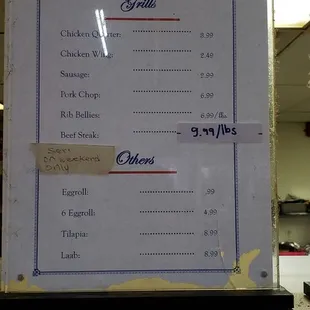 Grills
Chicken Quarter: 3.99
Chicken Wing: 2.49
Sausage: 2.99
Pork Chop: 6.99
Rib Bellies: 6.99/lbs
Beef Steak: 9.99/lbs
on weekend
only
Others
Eggroll: .99
6 Eggroll: 4.99
Tilapia: 8.99
Laab: 8.99